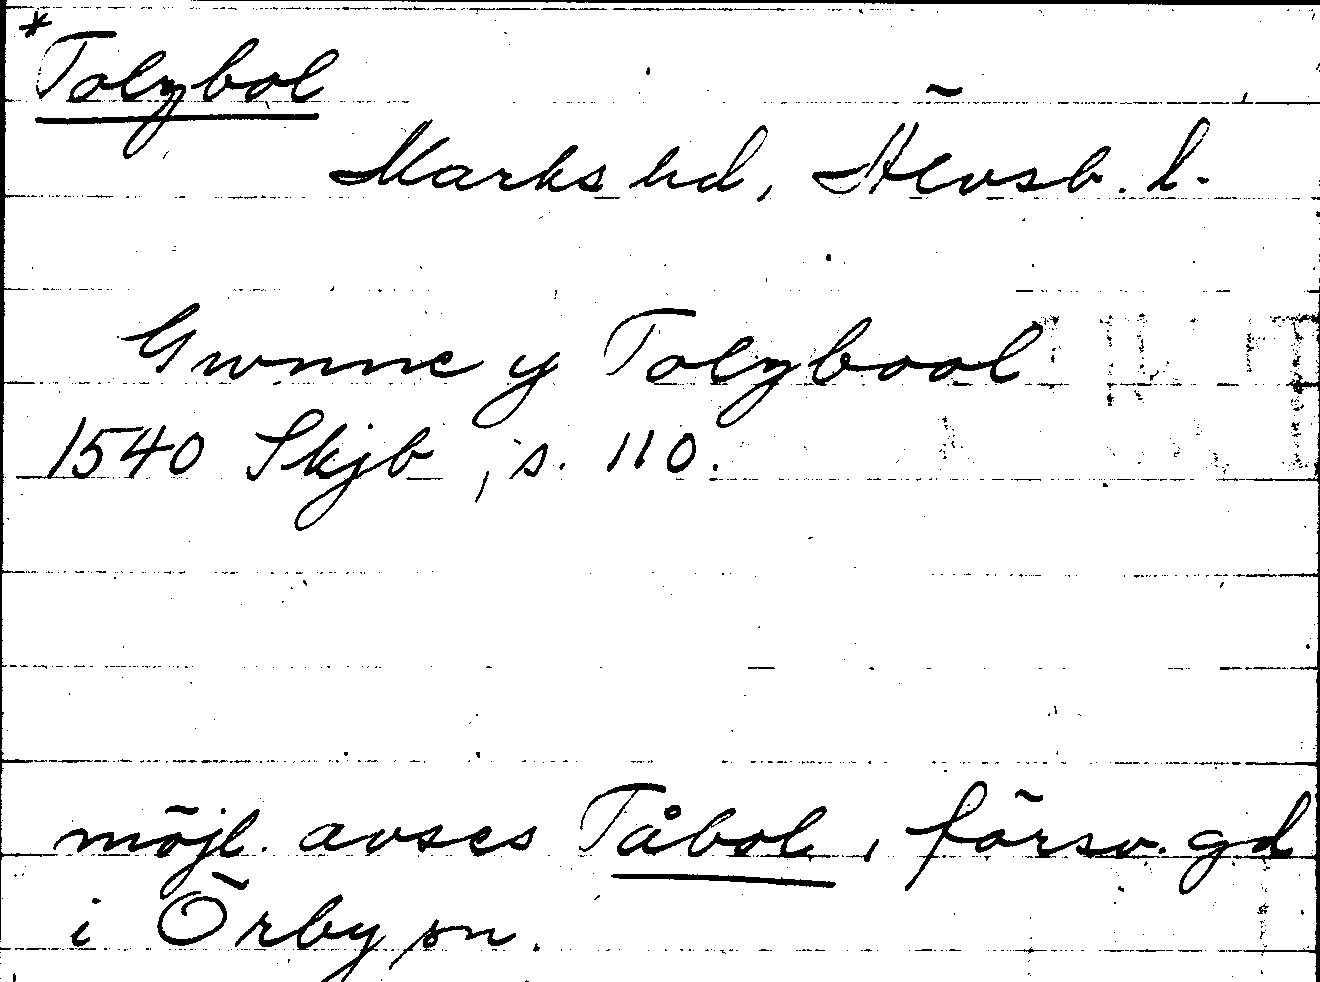 *Tolybol
Marks hd, Älvsb. l.
Gwnne y Tolybool
1540 Skjb, s. 110.
möjl. avses Tåbol, försv. gd
i Örby sn.